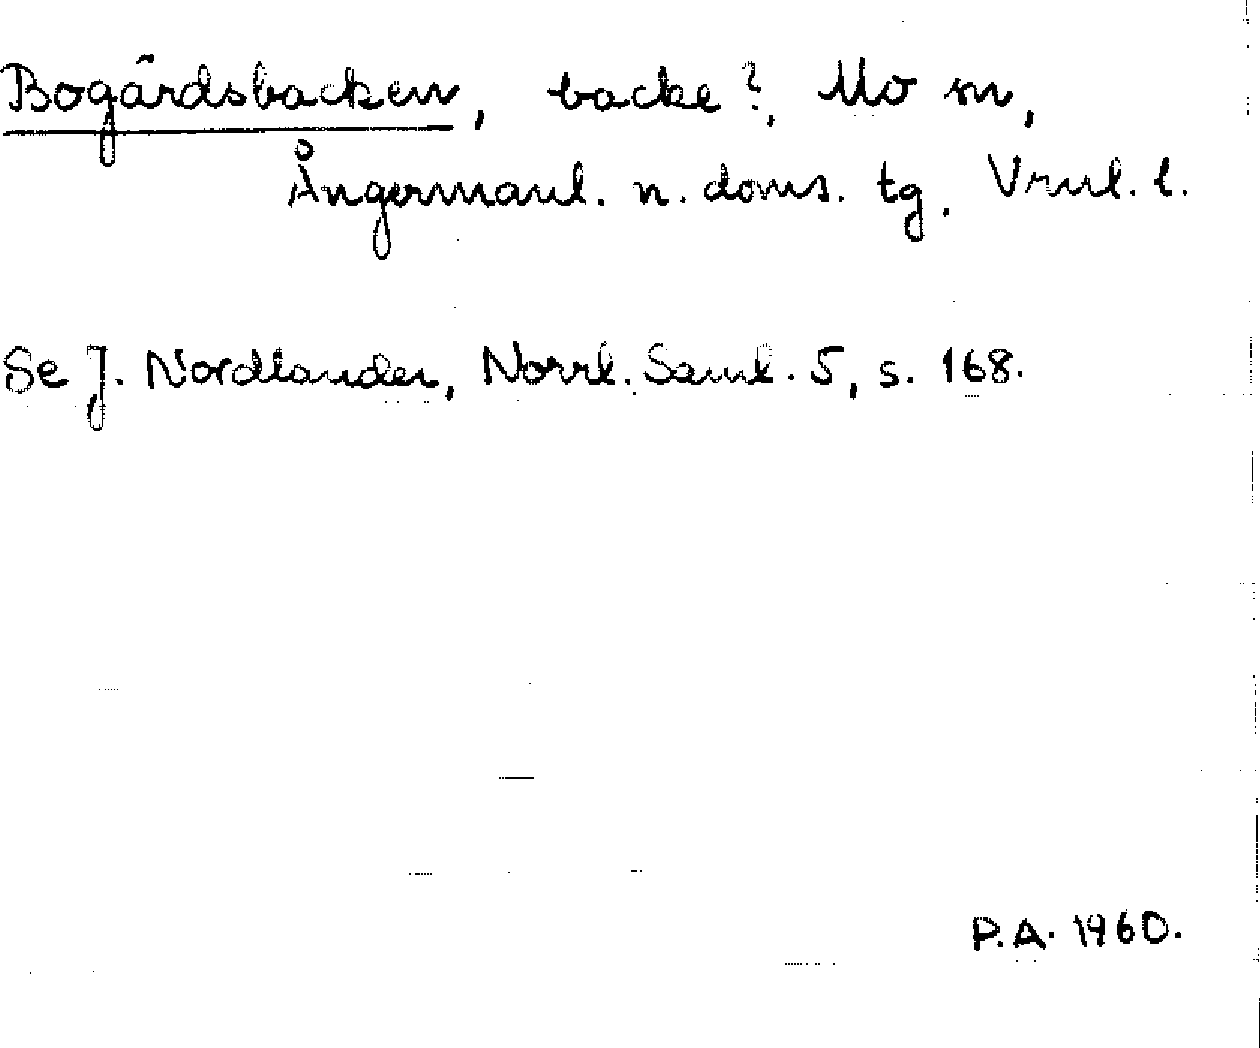 Bogårdsbacken, backe?, Mo sn,
Ångermanl. n. doms. tg. Vrnl. l.
Se J. Nordlander, Norrl. Saml. 5, s. 168.
P.A. 1960.